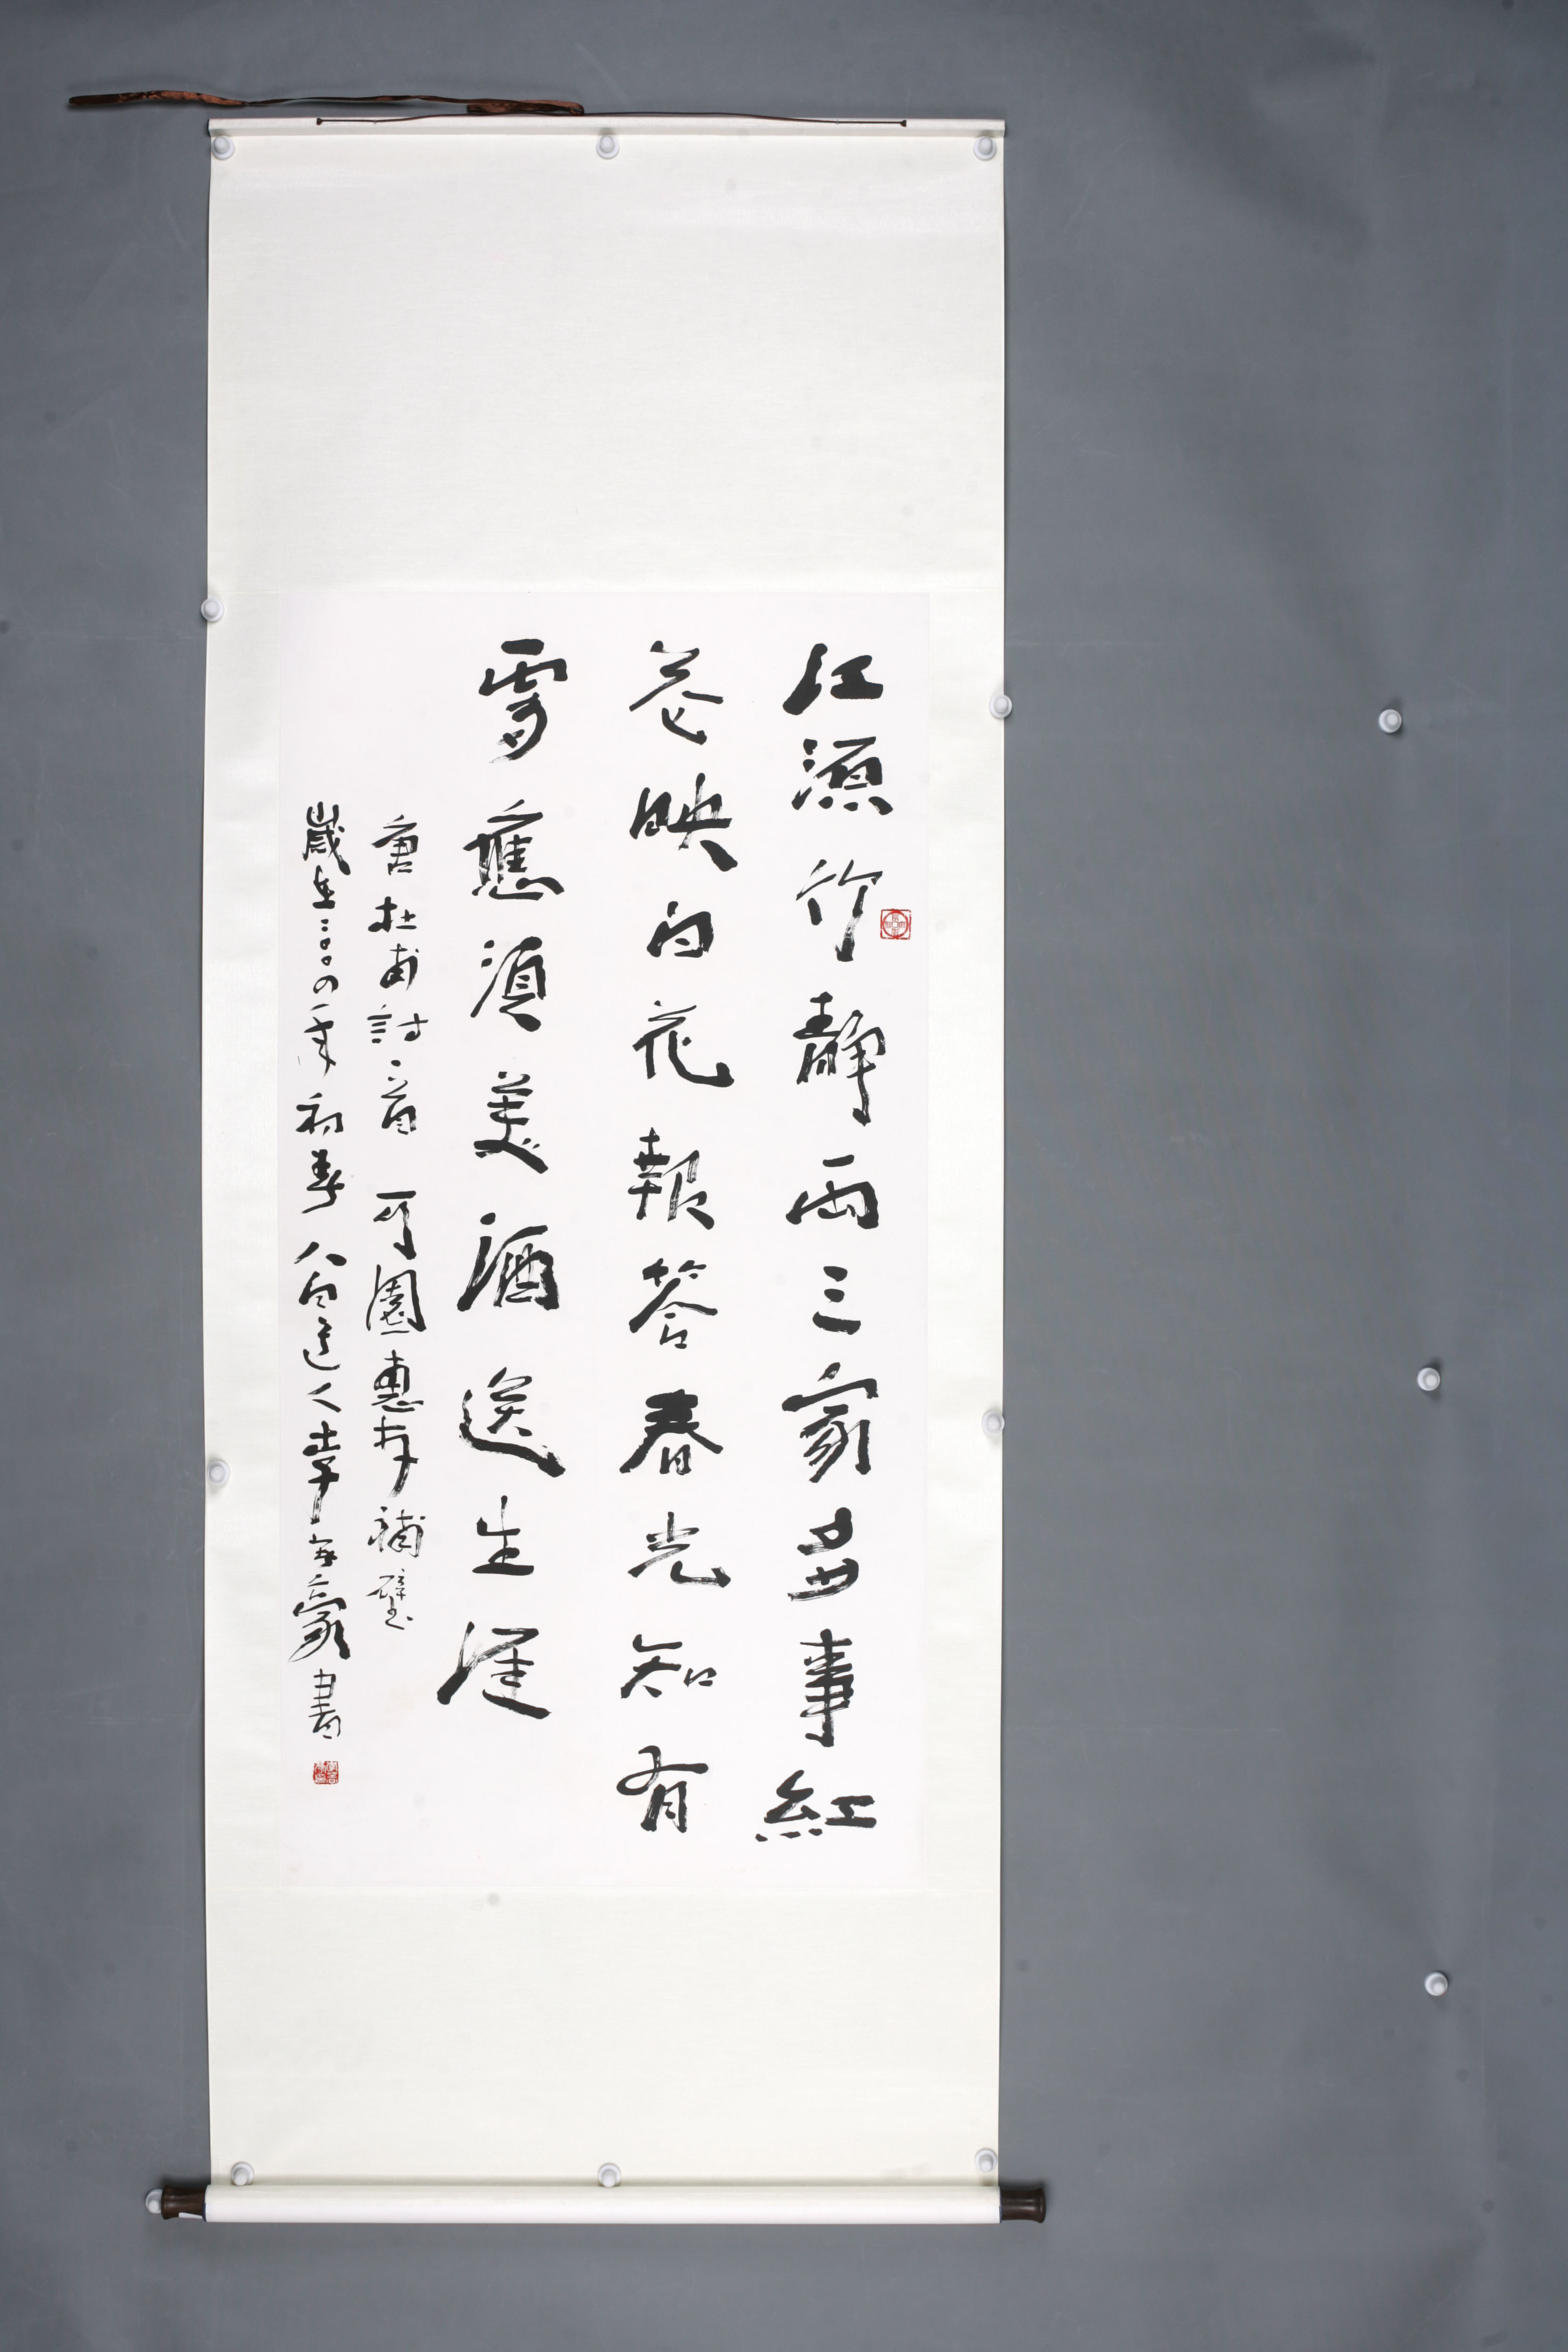 江源竹靜兩三家多事紅
花映白花報答春光知有
處應須美酒送生涯
唐杜甫詩一首 可園惠存補壁
歲在二〇〇四年初春 八百進人李無豪書